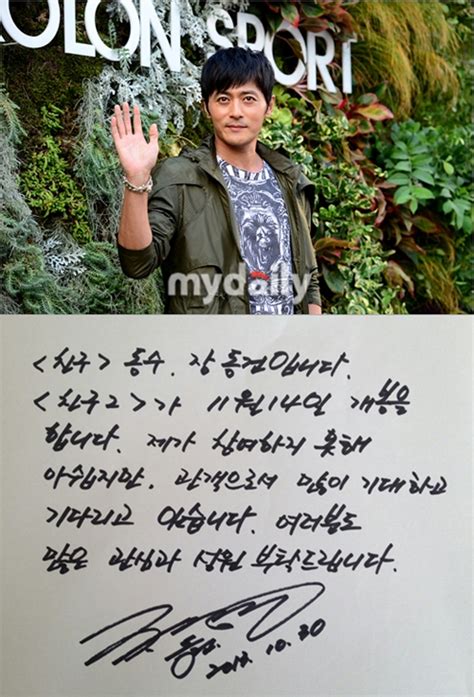 KOLON SPORT
mydaily
<친구> 동수. 장동건입니다.
<친구2>가 11월 14일 개봉을
합니다. 제가 참여하지 못해
아쉽지만. 관객으로서 많이 기대하고
기다리고 있습니다. 여러분도
많은 관심과 성원 부탁드립니다.
10. 30